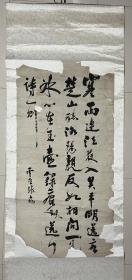 寒雨連江夜入吳平明送客
楚山孤洛陽親友如相問一片
冰心在玉壺錄唐
詩一首